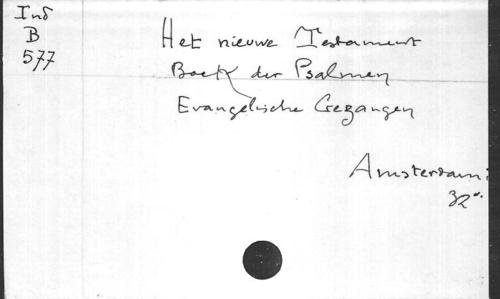 Ind
B
577
Het nieuwe Testament
Boek der Psalmen
Evangelische Gezangen
Amsterdam:
32°.